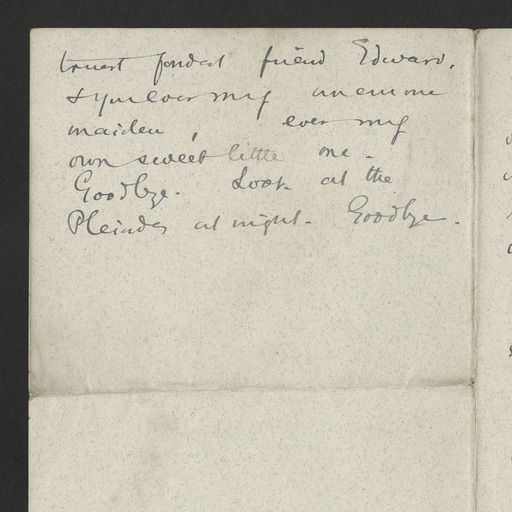 truest fondest friend Edward.
& you ever my anemone
maiden, ever my
own sweet little one -
Goodbye. Look at the
Pleiades at night - Goodbye -